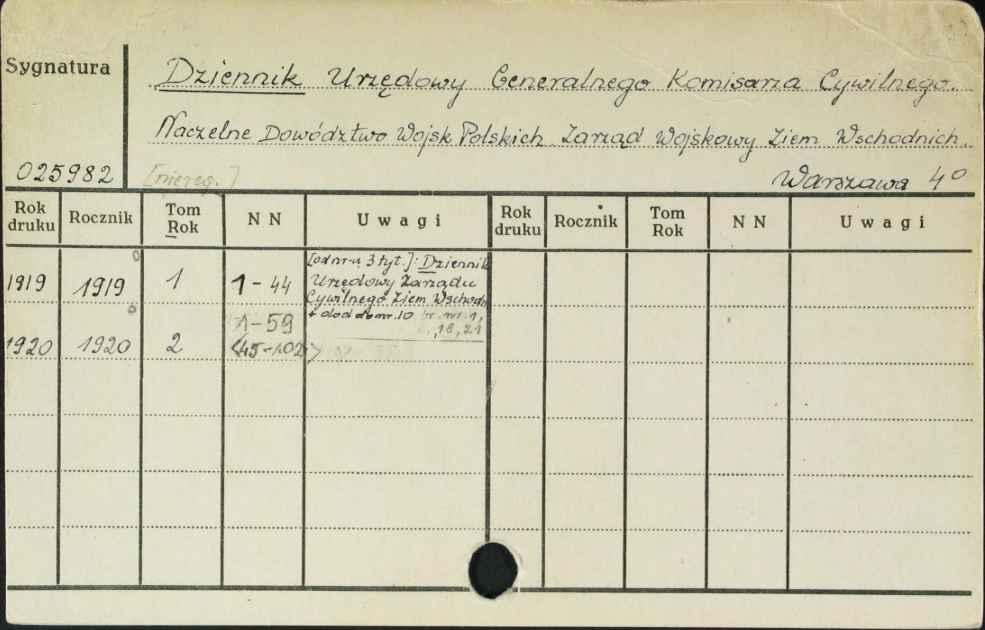 Sygnatura
Dziennik Urzędowy Generalnego Komisarza Cywilnego.
Naczelne Dowództwo Wojsk Polskich. Zarząd Wojskowy Ziem Wschodnich.
025982 [niereg.] Warszawa 4°
Rok druku Rocznik Tom Rok N N Uwagi Rok druku Rocznik Tom Rok N N Uwagi
1919 1919 1 1-44 [od nr-u 3 tyt.]: Dziennik
Urzędowy Zarządu
Cywilnego Ziem Wschodn
+ dod do nr. 10 br. nr. 1,
18, 21
1920 1920 2 1-59
(45-102)